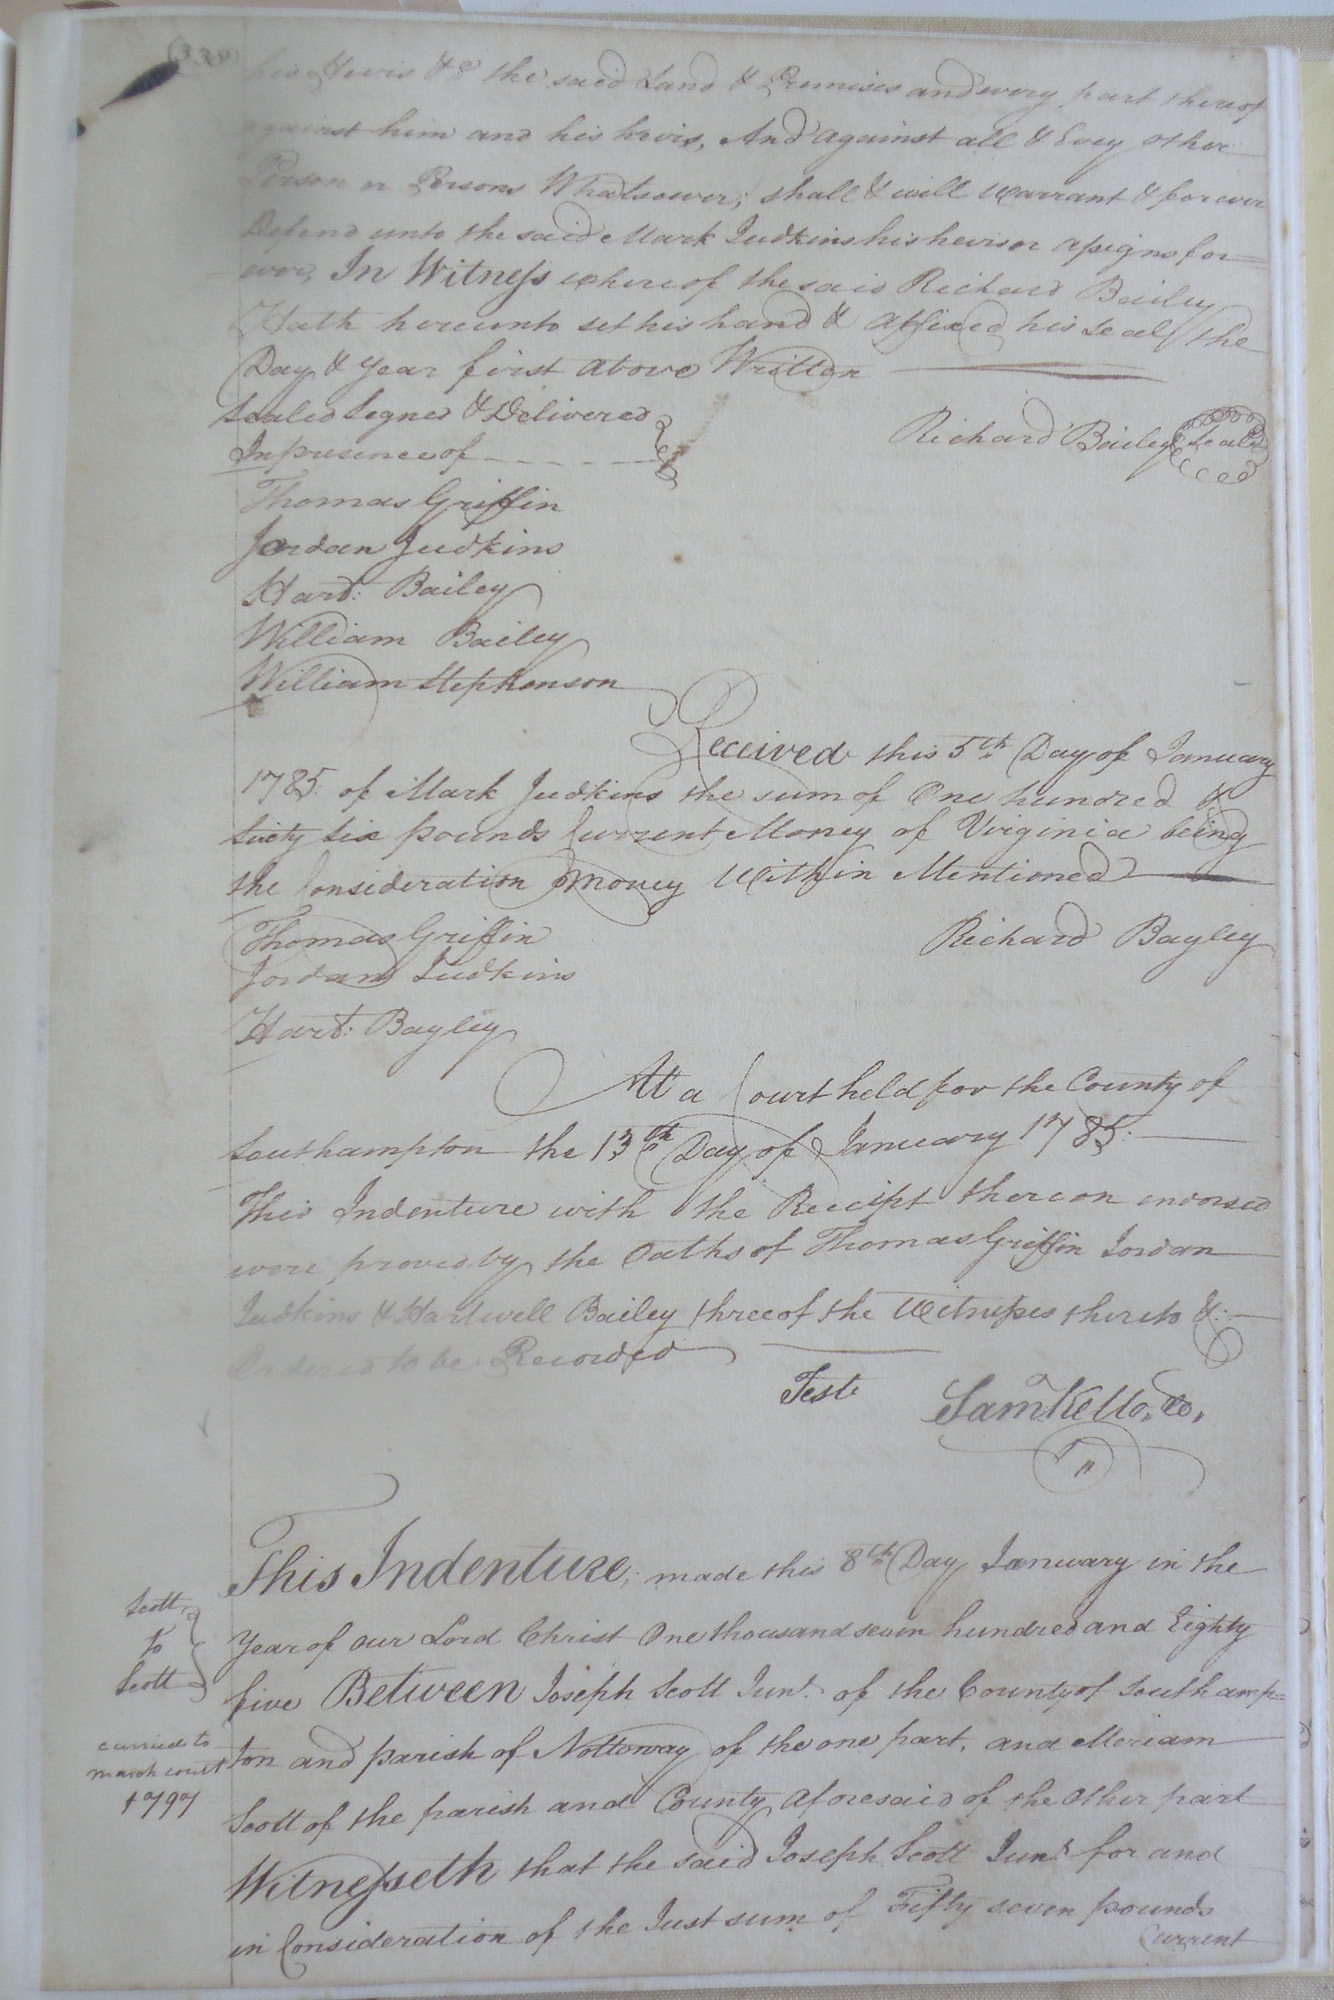 his heirs &c the said Land & Premises and every part thereof
against him and his heirs, And against all & Evey other
Person or Persons Whatsoever; shall & will warrant & forever
Defend unto the said Mark Judkins his heirs or assigns for=
ever, In Witness whereof the said Richard Bailey
Hath hereunto set his hand & affixed his Seal the
Day & Year first above Written
Sealed Signed & Delivered
In presence of
Richard Bailey Seal
Thomas Griffin
Jordan Judkins
Hard: Bailey
William Bailey
William Stephenson
Received this 5th Day of January
1785: of Mark Judkins the sum of One hundred &
Sixty six pounds Current Money of Virginia being
the Consideration Money Within Mentioned
Thomas Griffin
Richard Bayley
Jordan Judkins
Hard: Bayley
At a Court held for the County of
Southampton the 13th Day of January 1785:
This Indenture with the Receipt thereon endorsed
were proved by the Oaths of Thomas Griffin Jordan
Judkins & Hartwell Bailey three of the Witnesses thereto &:
Ordered to be Recorded
Teste Saml Kello, Co,
This Indenture, made this 8th Day January in the
Scott
to
Scott
Year of our Lord Christ One thousand seven hundred and Eighty
five Between Joseph Scott Junr. of the County of Southamp=
carried to
march court
1797
ton and parish of Nottoway of the one part, and Meriam
Scott of the parish and County aforesaid of the Other part
Witnesseth that the said Joseph Scott Junr for and
in Consideration of the Just sum of Fifty seven pounds
Current